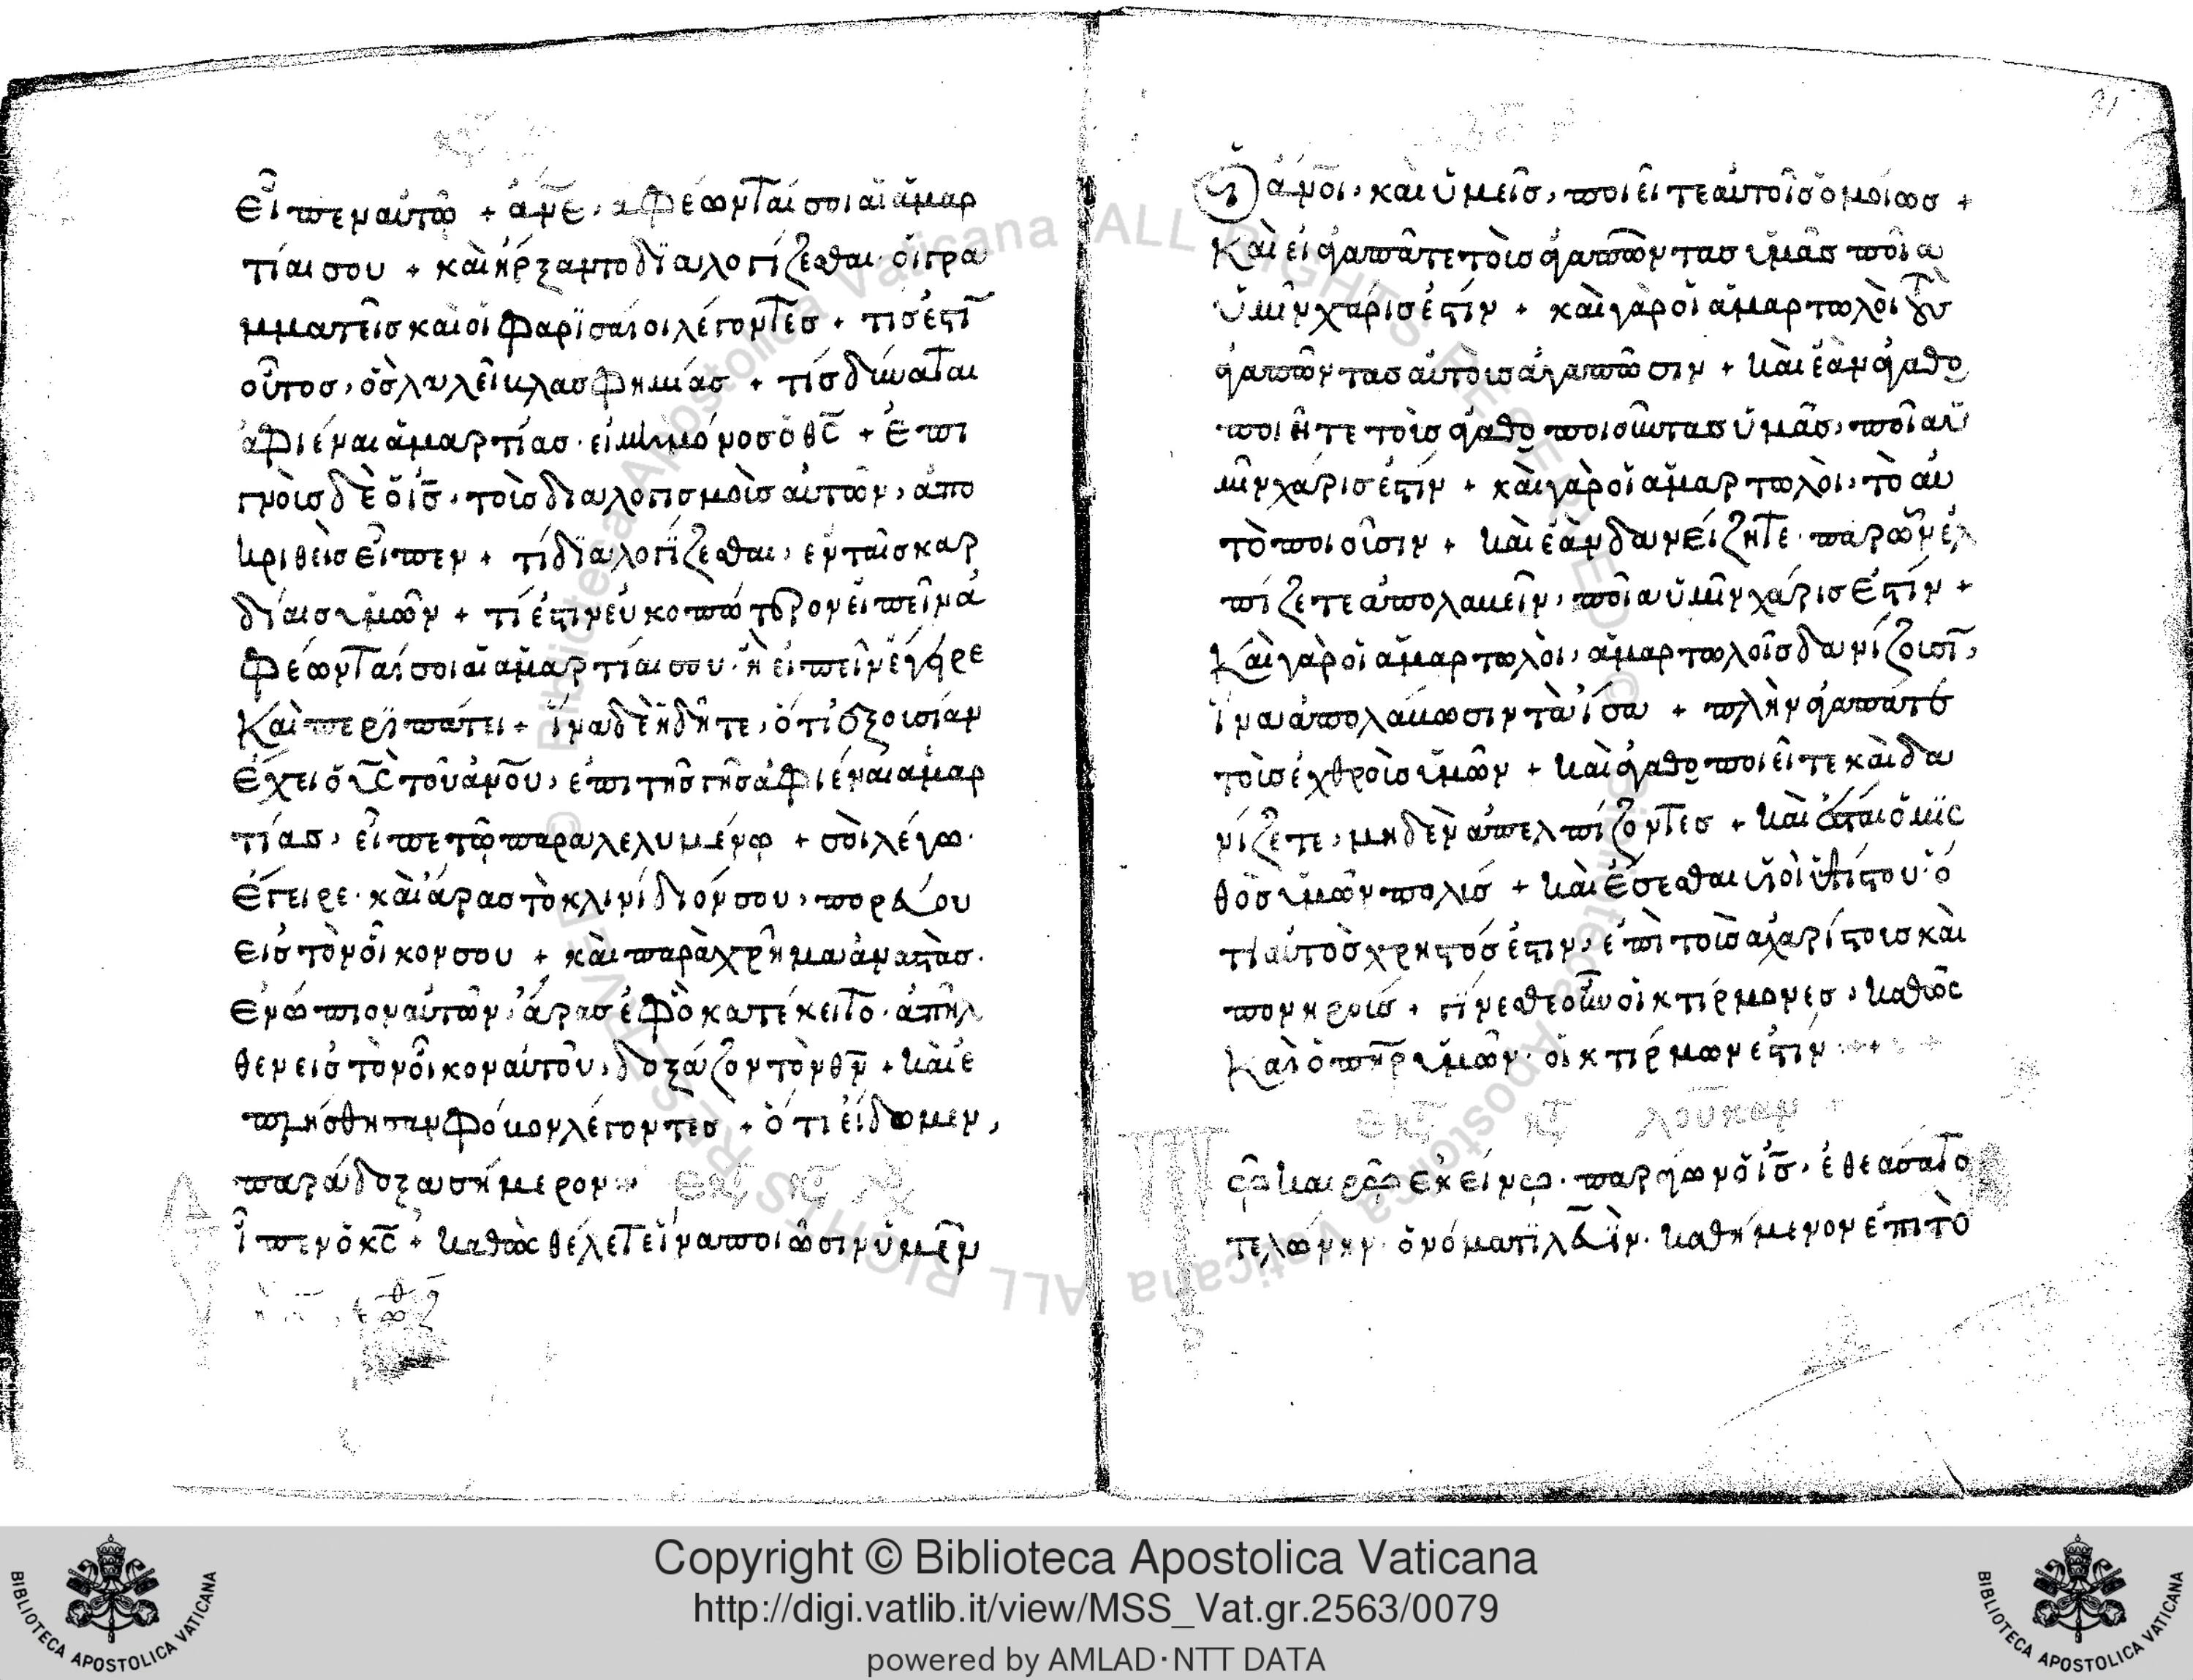 εἶπεν αὐτῶ + ἄνε, ἀφέωνταί σοι αἱ ἁμαρ
τίαι σου + καὶ ἤρξαντο διαλογίζεσθαι οἱ γρα
μματεῖς καὶ οἱ φαρϊσαίοι λέγοντες + τίς ἐστῒ
οὗτος, ὃς λαλεῖ βλασφημίας + τίς δύναται
ἀφιέναι ἁμαρτίας· εἰ μὴ μόνος ὁ θς + ἐπι
γνοὺς δὲ ὁ ις, τοὺς διαλογισμοὺς αὐτῶν, ἀπο
κριθεὶς εἶπεν + τί διαλογίζεσθαι, ἐν ταῖς καρ
δίαις ὑμῶν + τί ἐστιν εὐκοπώτερον εἰπεῖν ἀ
φέωνταί σοι αἱ ἁμαρτίαι σου· ἢ εἰπεῖν ἔγειρε
καὶ περιπάτει + ἵνα δὲ ἠδῆτε, ὅτι ἐξουσίαν
ἔχει ὁ υς τοῦ ἀνου, ἐπι τῆς γῆς ἀφιέναι ἁμαρ
τίας, εἶπε τῶ παραλελυμένω + σοὶ λέγω·
ἔγειρε· καὶ ἄρας τὸ κλινίδιόν σου, πορεύου
εἰς τὸν οἶκον σου + καὶ παρὰχρῆμα ἀναστὰς·
ἐνώπιον αὐτῶν, ἄρας ἐφ ὃ κατέκειτο· ἀπῆλ
θεν εἰς τὸν οἶκον αὐτοῦ, δοξάζον τὸν θν + καὶ ἐ
πλήσθησαν φόβου λέγοντες + ὅτι εἴδωμεν,
παράδοξα σήμερον
ἶπεν ὁ κς + καθὼς θέλετε ἵνα ποιῶσιν ὑμῖν
οἱ ἄνοι, καὶ ὑμεῖς, ποιεῖτε αὐτοῖς ὁμοίως +
καὶ εἰ ἀγαπᾶτε τοὺς ἀγαπῶντας ὑμᾶς ποῖα
ὑμῖν χάρις ἐστίν + καὶ γὰρ οἱ ἁμαρτωλοὶ τοὺς
ἀγαπῶντας αὐτοὺς ἀγαπῶσιν + καὶ ἐὰν ἀγαθο
ποιῆτε τοὺς ἀγαθοποιοῦντας ὑμᾶς, ποῖα ὑ
μῖν χάρις ἐστίν + καὶ γὰρ οἱ ἁμαρτωλοὶ, τὸ αὐ
τὸ ποιοῦσιν + καὶ ἐὰν δανείζητε· παρ ὧν ἐλ
πίζετε ἀπολαβεῖν, ποῖα ὑμῖν χάρις ἐστίν +
καὶ γὰρ οἱ ἁμαρτωλοὶ, ἁμαρτωλοῖς δανίζουσῒ,
ἵνα ἀπολάβωσιν τὰ ἴσα + πλὴν ἀγαπάτε
τοὺς ἐχθροὺς ὑμῶν + καὶ ἀγαθοποιεῖτε καὶ δα
νίζετε, μηδὲν ἀπελπίζοντες + καὶ ἔσται ὁ μισ
θὸς ὑμῶν πολύς + καὶ ἔσεσθαι υἱοὶ ὑψίστου· ὅ
τι αὐτὸς χρηστός ἐστιν, ἐπὶ τοὺς ἀχαρίστους καὶ
πονηρούς + γίνεσθε οὖν οἰκτίρμονες, καθὼς
καὶ ὁ πηρ ὑμῶν· οἰκτίρμων ἐστίν
εκ τ κτ λουκαν
τῶ καιρῶ ἐκείνω· παρήων ὁ ις, ἐθεάσατο
τελώνην· ὀνόματι λευϊν· καθήμενον ἐπι τὸ
Copyright © Biblioteca Apostolica Vaticana
http://digi.vatlib.it/view/MSS_Vat.gr.2563/0079
powered by AMLAD·NTT DATA
BIBLIOTECA APOSTOLICA VATICANA
BIBLIOTECA APOSTOLICA VATICANA